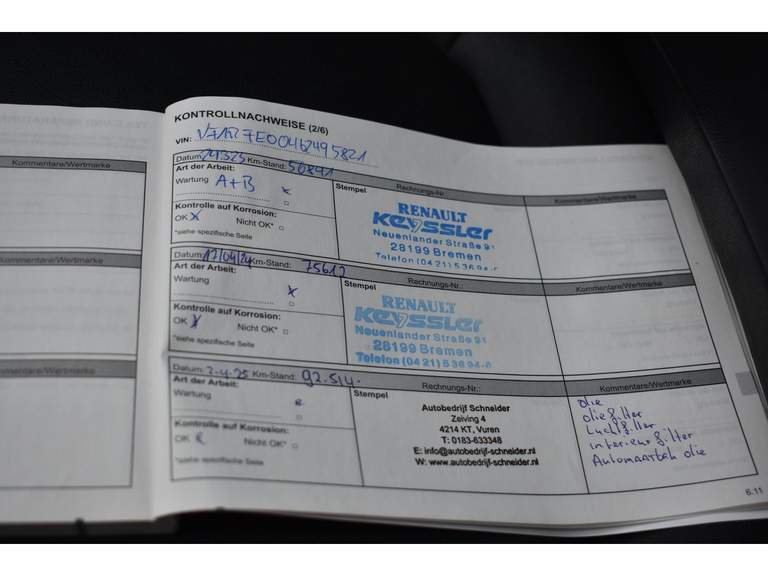 Kommentare/Wertmarke
Kommentare/Wertmarke
Kommentare/Wertmarke
KONTROLLNACHWEISE (2/6)
VIN:
Datum: Km-Stand: 50841
Art der Arbeit:
Wartung A+B x
Kontrolle auf Korrosion:
OK X Nicht OK*
*siehe spezifische Seite
Stempel Rechnungs-Nr.:
RENAULT
Keyssler
Neuenlander Straße 91
28199 Bremen
Telefon (04 21) 5 36 94-0
Kommentare/Wertmarke
Datum: 17/04/24 Km-Stand: 75612
Art der Arbeit:
Wartung x
Kontrolle auf Korrosion:
OK X Nicht OK*
*siehe spezifische Seite
Stempel Rechnungs-Nr.:
RENAULT
Keyssler
Neuenlander Straße 91
28199 Bremen
Telefon (04 21) 5 36 94-0
Kommentare/Wertmarke
Datum: 2-4-25 Km-Stand: 92.514.
Art der Arbeit:
Wartung
Kontrolle auf Korrosion:
OK Nicht OK*
*siehe spezifische Seite
Stempel Rechnungs-Nr.:
Autobedrijf Schneider
Zeiving 4
4214 KT, Vuren
T: 0183-633348
E: info@autobedrijf-schneider.nl
W: www.autobedrijf-schneider.nl
Kommentare/Wertmarke
olie
olie filter
Luchtfilter
interieurfilter
Automaatbak olie
6.11